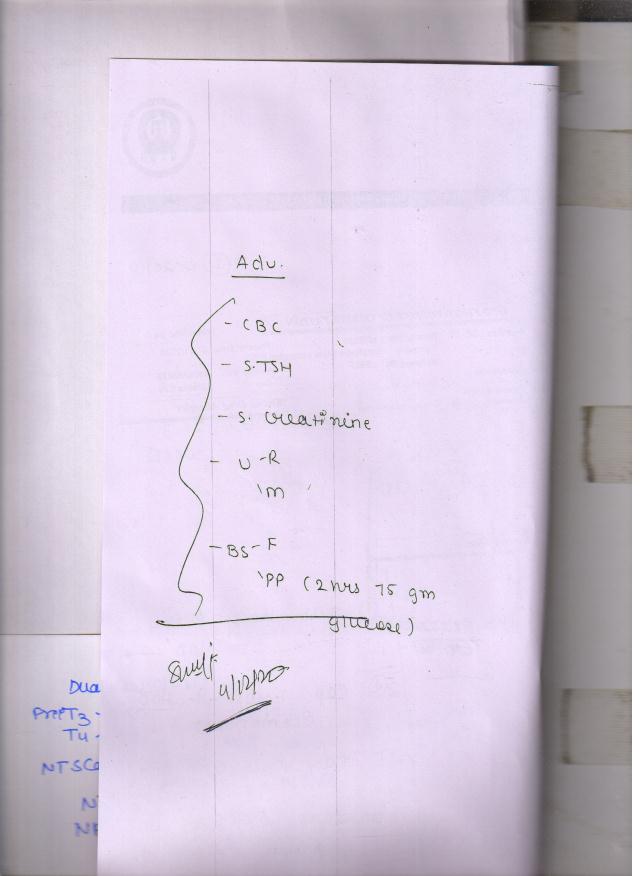 Adv.
- CBC
- S.TSH
- S. Creatinine
- U - R
\ m
- BS - F
\ PP (2 hrs 75 gm
glucose)
4/12/20
Dua
T3 -
T4 -
NTSC
N